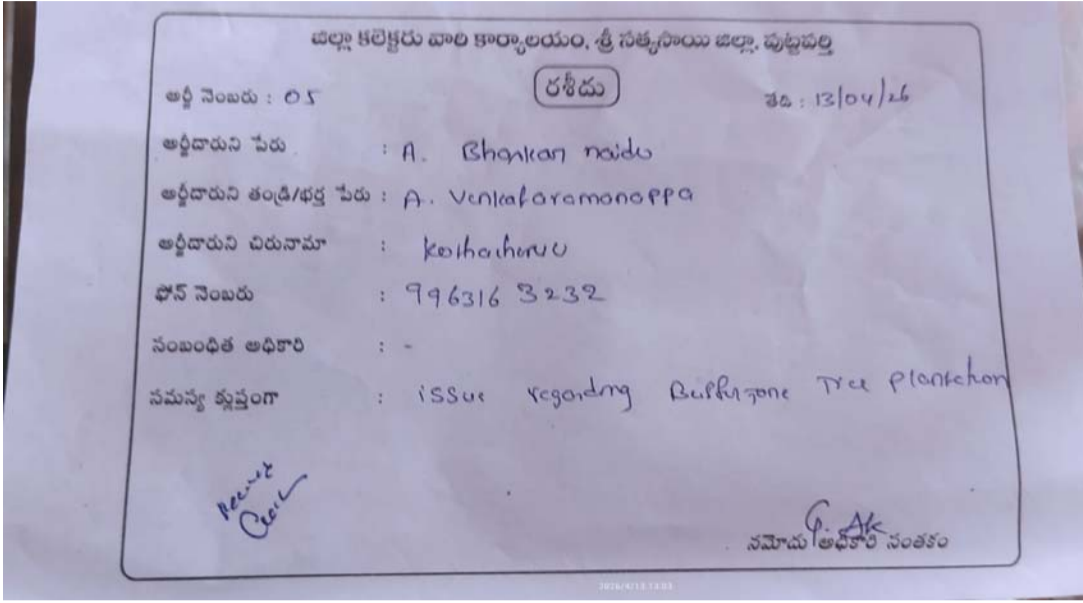 జిల్లా కలెక్టరు వారి కార్యాలయం, శ్రీ సత్యసాయి జిల్లా, పుట్టపర్తి
రశీదు
అర్జీ నెంబరు : 05 తేది : 13/04/26
అర్జీదారుని పేరు : A. Bhaskar naidu
అర్జీదారుని తండ్రి/భర్త పేరు : A. Venkataramanappa
అర్జీదారుని చిరునామా : Kothacheruvu
ఫోన్ నెంబరు : 996316 3232
సంబంధిత అధికారి : -
సమస్య క్లుప్తంగా : issue regarding Bufferzone Tree Plantation
నమోదు అధికారి సంతకం
2026/4/13 13:03